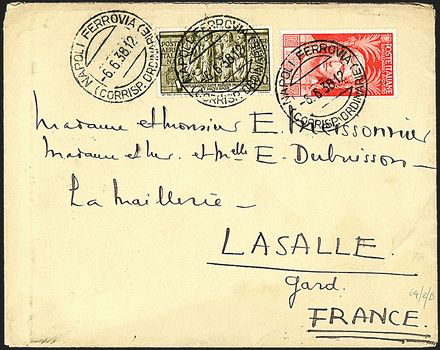 NAPOLI FERROVIA
(CORRISP. ORDINARIE)
-6.6.38.12
NAPOLI FERROVIA
(CORRISP. ORDINARIE)
-6.6.38.12
NAPOLI FERROVIA
(CORRISP. ORDINARIE)
-6.6.38.12
POSTE ITALIANE
Madame et monsieur E.
Madame et Mr. et Melle E. Dubuisson
La Maillerie –
LASALLE.
Gard.
FRANCE.